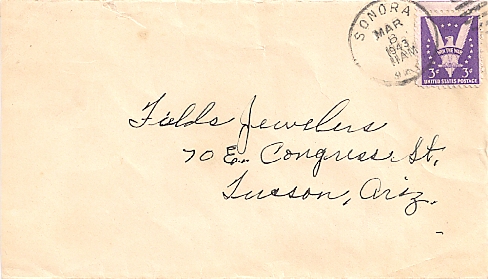 SONORA
MAR
8
1943
11 AM
WIN THE WAR
3¢ 3¢
UNITED STATES POSTAGE
Fields Jewelers
70 E. Congress St,
Tucson, Ariz.